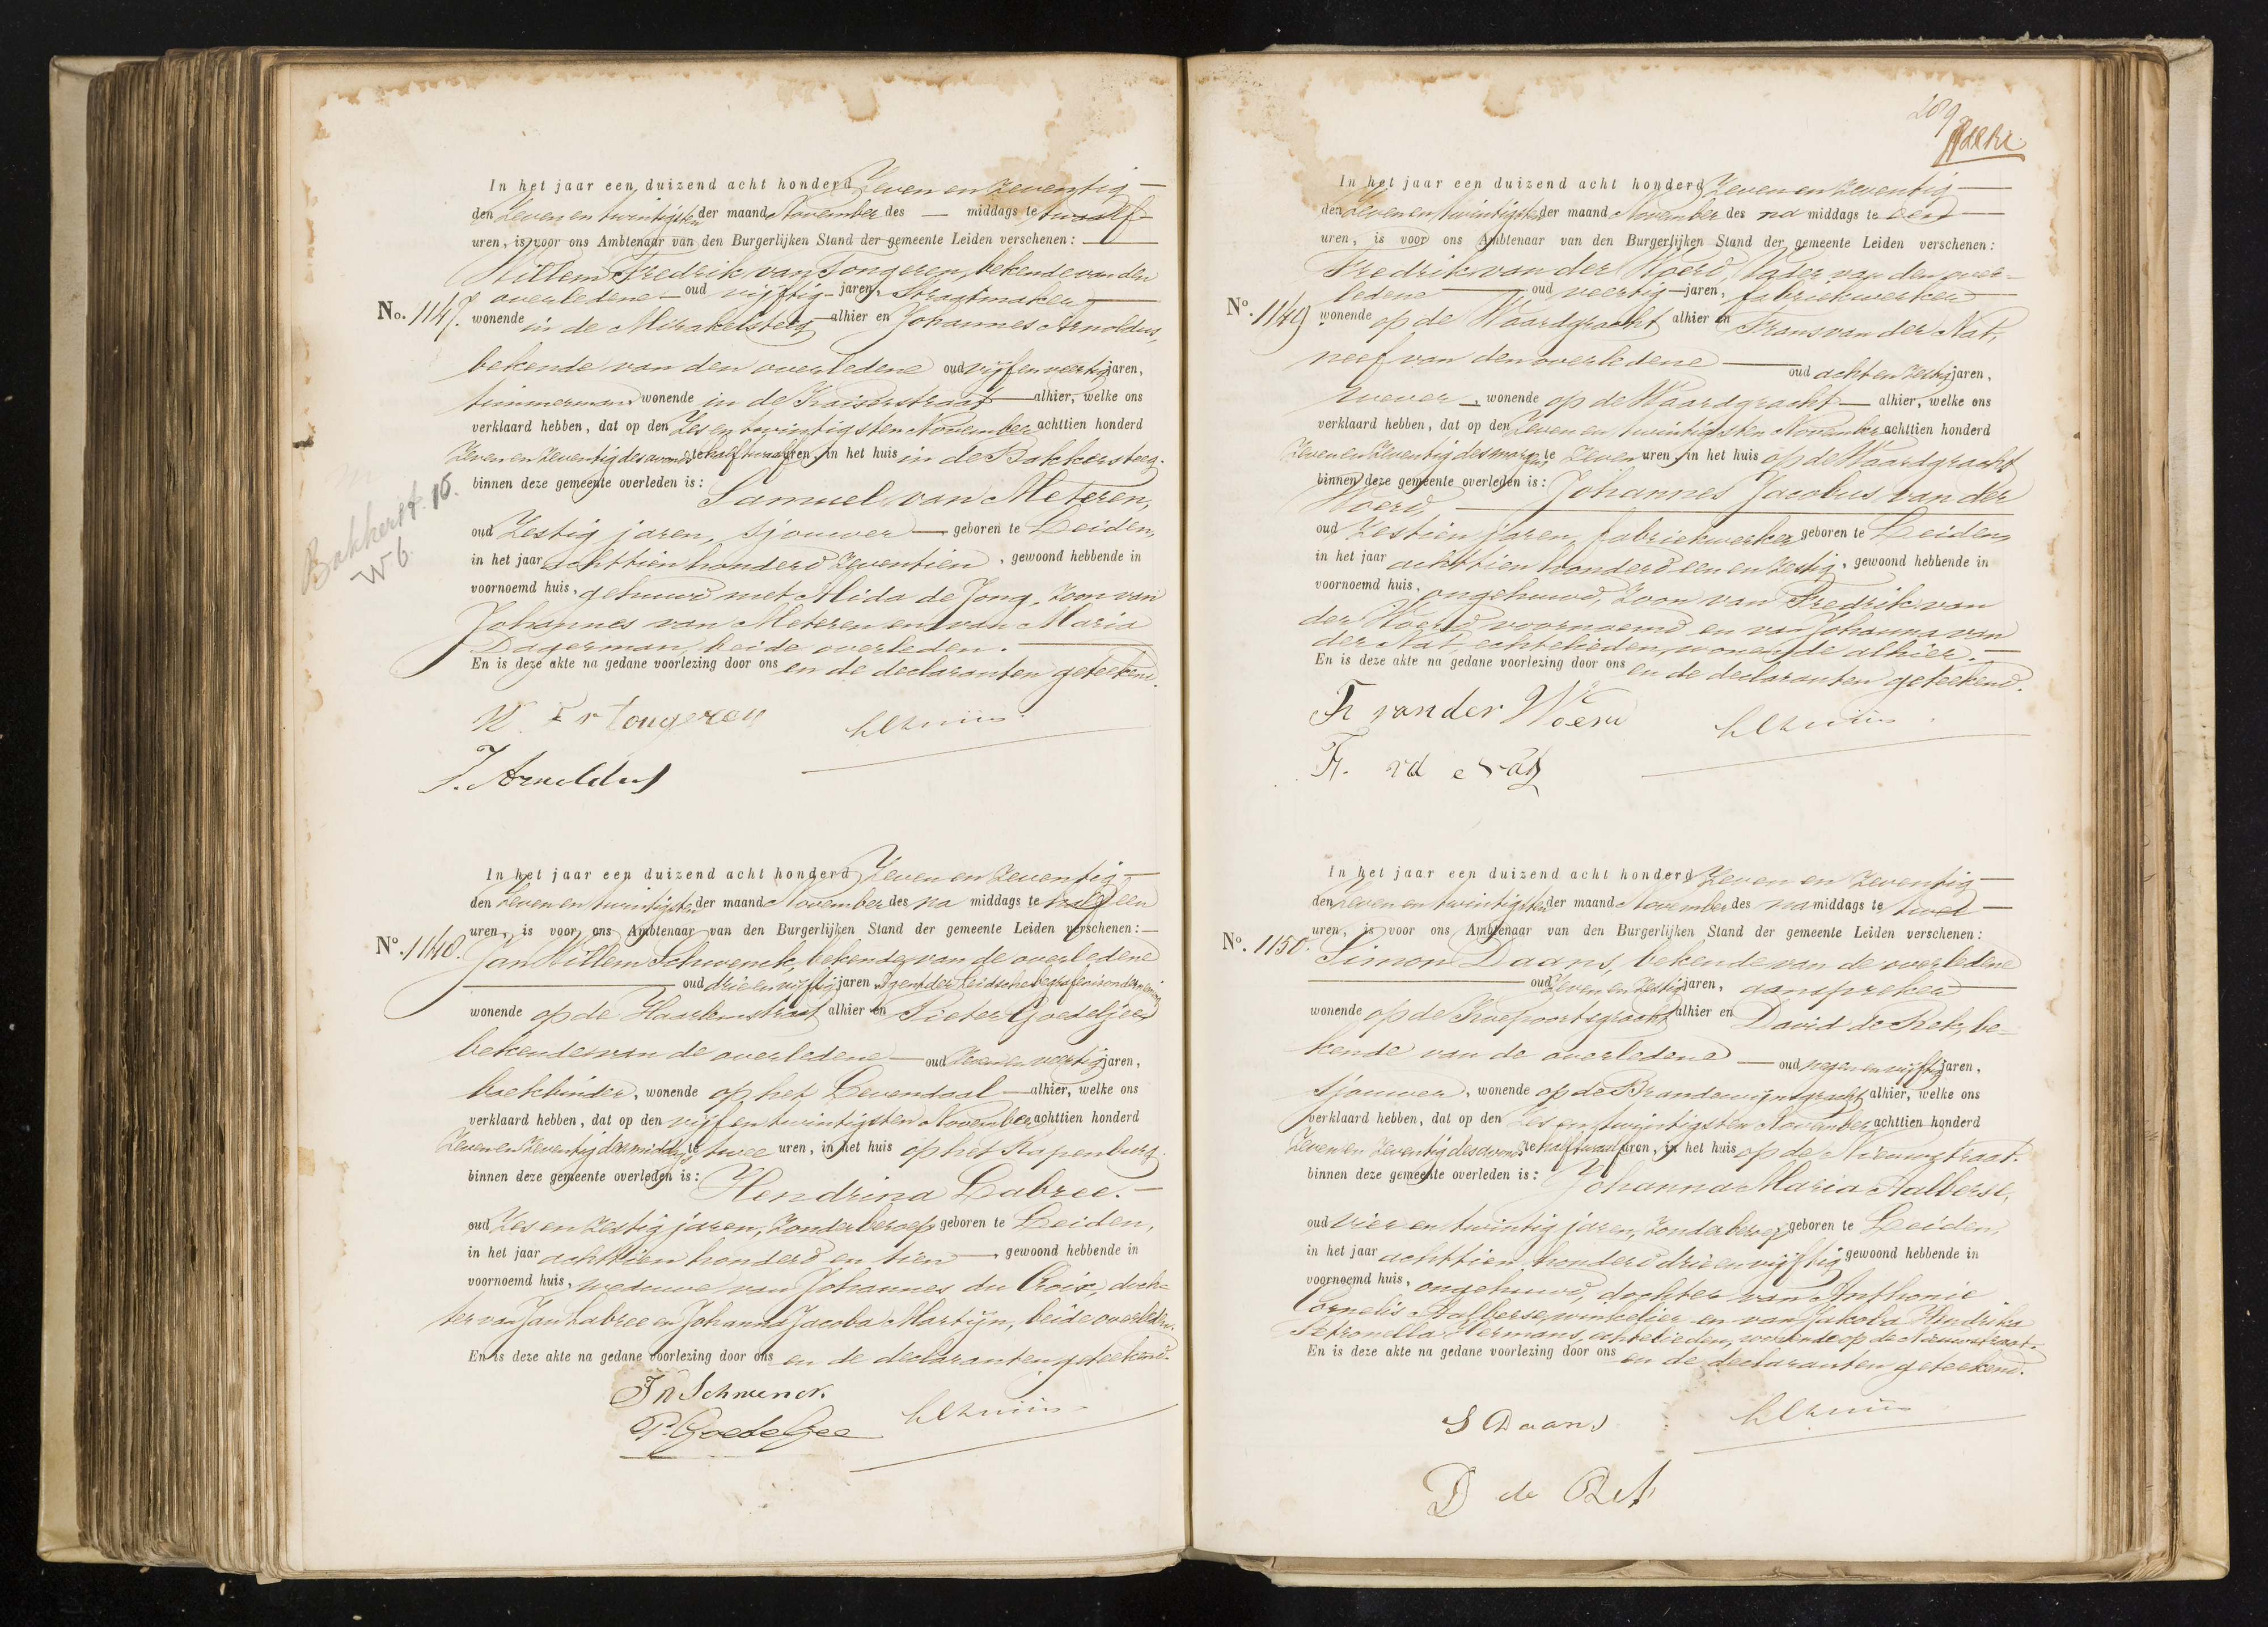 In het jaar een duizend acht honderd Zeven en Zeventig
den Zeven en twintigsten der maand November des — middags te twaalf
uren, is voor ons Ambtenaar van den Burgerlijken Stand der gemeente Leiden verschenen:
Willem Fredrik van Tongeren, bekende van den
overledene oud vijftig jaren, Straatmaker
No. 1147. wonende in de Mirakelsteeg alhier en Johannes Arnoldus,
bekende van den overledene oud vijf en veertig jaren,
timmerman wonende in de Kaiserstraat alhier, welke ons
verklaard hebben, dat op den Zes en twintigsten November achttien honderd
Zeven en Zeventig des avonds te half twaalf uren, in het huis in de Bakkersteeg.
binnen deze gemeente overleden is: Samuel van Meteren,
oud Zestig jaren, sjouwer geboren te Leiden,
in het jaar achttien honderd Zeventien, gewoond hebbende in
voornoemd huis, gehuwd met Alida de Jong, Zoon van
Johannes van Meteren en van Maria
Dagerman, beide overleden.
En is deze akte na gedane voorlezing door ons en de declaranten geteekend.
Bakkerst. 15.
W 6
W F v Tongeren
J. Arnoldus
In het jaar een duizend acht honderd Zeven en Zeventig
den Zeven en twintigsten der maand November des na middags te half een
uren, is voor ons Ambtenaar van den Burgerlijken Stand der gemeente Leiden verschenen:
No. 1148. Jan Willem Schwenck, bekende van de overledene
oud drie en vijftig jaren Agent der Leidsche begrafenisonderneming
wonende op de Haarlemstraat alhier en Pieter Goedeljee
bekende van de overledene oud Zeven en veertig jaren,
boekbinder, wonende op het Levendaal alhier, welke ons
verklaard hebben, dat op den vijf en twintigsten November achttien honderd
Zeven en Zeventig des middags te twee uren, in het huis op het Rapenburg
binnen deze gemeente overleden is: Hendrina Labree.
oud Zes en Zestig jaren, Zonder beroep geboren te Leiden,
in het jaar achttien honderd en tien, gewoond hebbende in
voornoemd huis, weduwe van Johannes du Croix, doch-
ter van Jan Labree en Johanna Jacoba Martijn, beide overleden.
En is deze akte na gedane voorlezing door ons en de declaranten geteekend.
JW Schwenck
P. Goedeljee
289
In het jaar een duizend acht honderd Zeven en Zeventig
den Zeven en twintigsten der maand November des na middags te een
uren, is voor ons Ambtenaar van den Burgerlijken Stand der gemeente Leiden verschenen:
Fredrik van der Woerd, Vader van den over-
ledene oud veertig jaren, fabriekwerker
No. 1149 wonende op de Waardgracht alhier en Frans van der Nat,
neef van den overledene oud acht en Zestig jaren,
wever, wonende op de Waardgracht alhier, welke ons
verklaard hebben, dat op den Zeven en twintigsten November achttien honderd
Zeven en Zeventig des morgens te Zeven uren, in het huis op de Waardgracht
binnen deze gemeente overleden is: Johannes Jacobus van der
Woerd,
oud Zestien jaren, fabriekwerker geboren te Leiden,
in het jaar achttien honderd een en Zestig, gewoond hebbende in
voornoemd huis, ongehuwd, Zoon van Fredrik van
der Woerd voornoemd en van Johanna van
der Nat, echtelieden, wonende alhier.
En is deze akte na gedane voorlezing door ons en de declaranten geteekend.
Fr van der Woerd
Fr. vd Nat
In het jaar een duizend acht honderd Zeven en Zeventig
den Zeven en twintigsten der maand November des na middags te twee
uren, is voor ons Ambtenaar van den Burgerlijken Stand der gemeente Leiden verschenen:
No. 1150. Simon Daans, bekende van de overledene
oud Zeven en Zestig jaren, aanspreker
wonende op de Koepoortsgracht alhier en David de Rek, be-
kende van de overledene oud negen en vijftig jaren,
Sjouwer, wonende op de Brandewijnsgracht alhier, welke ons
verklaard hebben, dat op den Zes en twintigsten November achttien honderd
Zeven en Zeventig des avonds te half twaalf uren, in het huis op de Nieuwstraat.
binnen deze gemeente overleden is: Johanna Maria Aalberse,
oud vier en twintig jaren, Zonder beroep, geboren te Leiden,
in het jaar achttien honderd drie en vijftig gewoond hebbende in
voornoemd huis, ongehuwd, dochter van Anthonie
Cornelis Aalberse, winkelier en van Jakoba Hendrika
Petronella Hermans, echtelieden, wonende op de Nieuwstraat.
En is deze akte na gedane voorlezing door ons en de declaranten geteekend.
S Daans
D de Rek